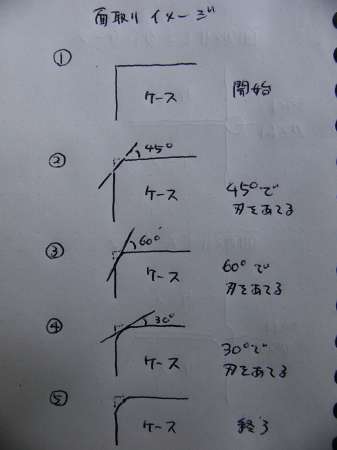 面取りイメージ
①
ケース
開始
②
45°
ケース
45°で
刃をあてる
③
60°
ケース
60°で
刃をあてる
④
30°
ケース
30°で
刃をあてる
⑤
ケース
終了